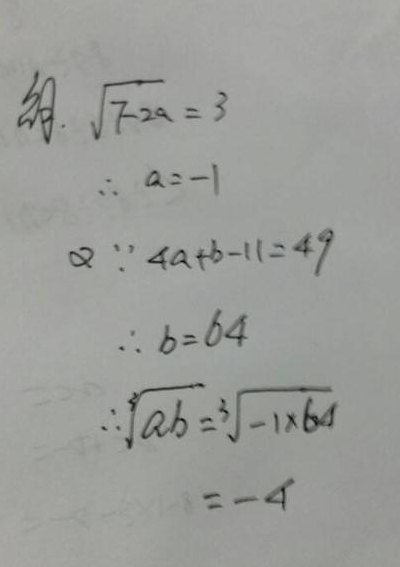 解. √(7-2a) = 3
∴ a = -1
又∵ 4a+b-11 = 49
∴ b = 64
∴ ∛(ab) = ∛(-1×64)
= -4